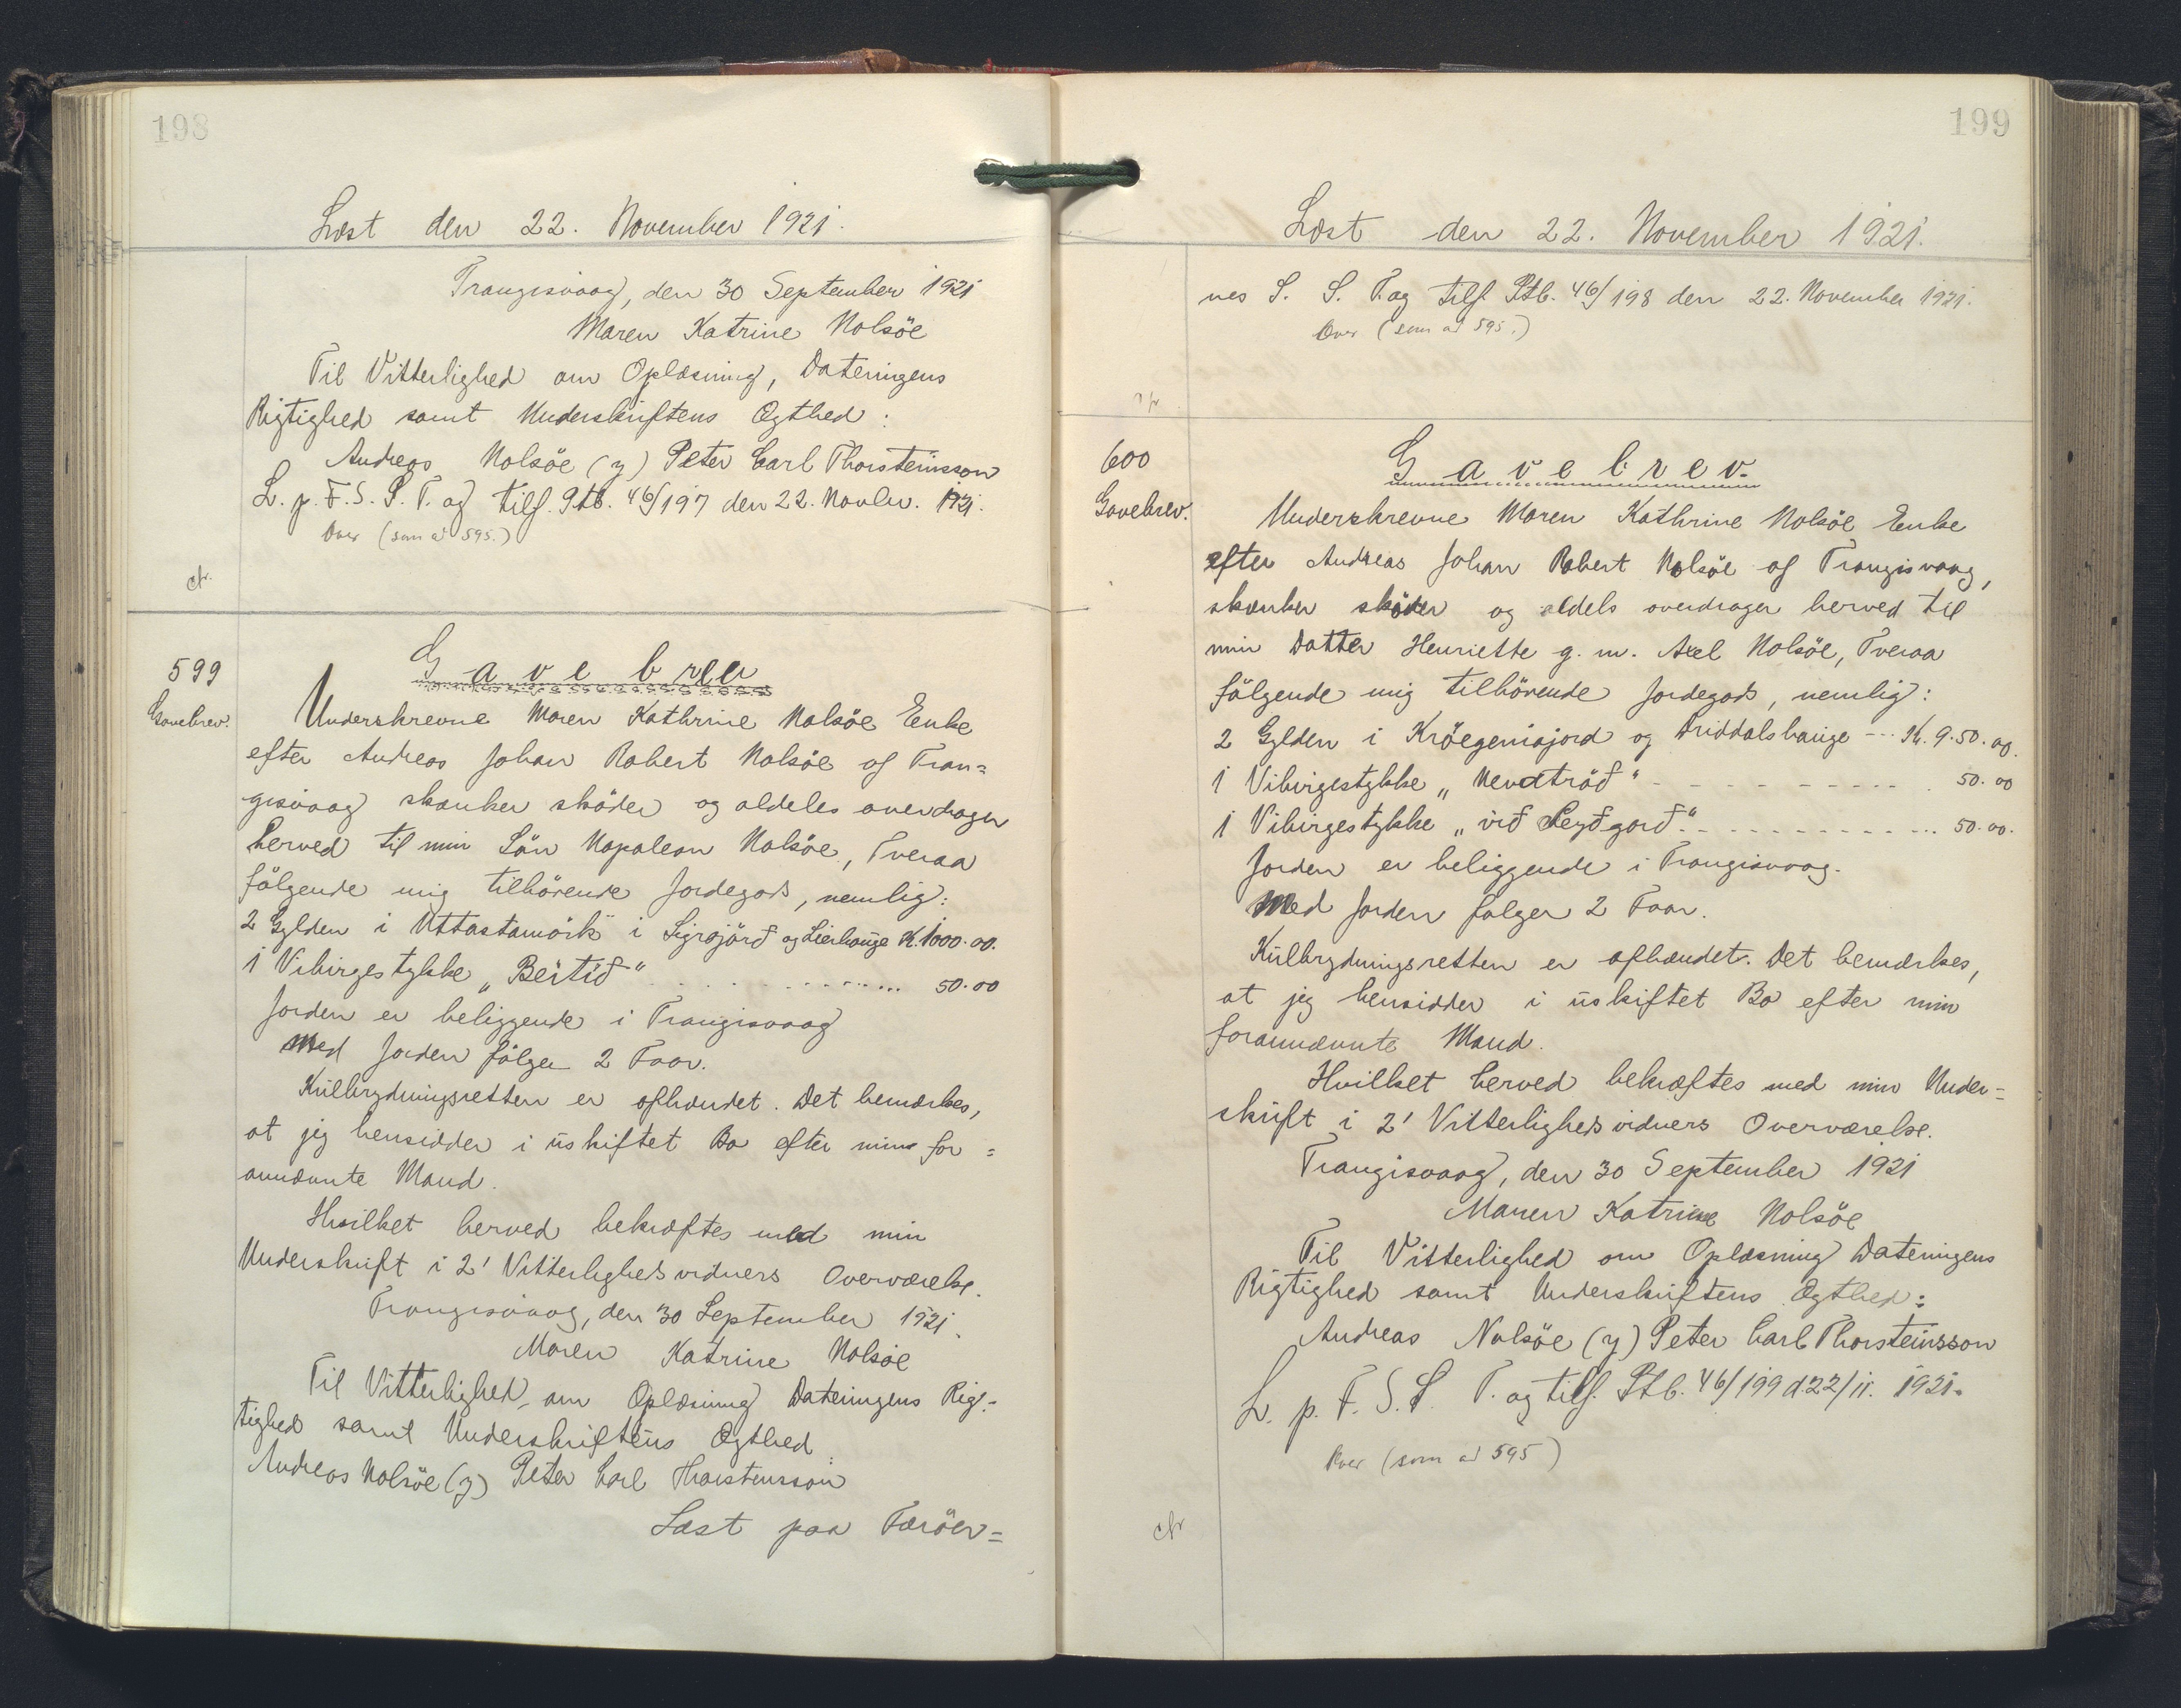 198
Læst den 22. November 1921.
Trangisvaag, den 30 September 1921
Maren Katrine Nolsöe
Til Vitterlighed om Oplæsning, Dateringens
Rigtighed samt Underskriftens Ægthed:
Andreas Nolsöe (y) Peter Carl Thorsteinsson
L. p. F. S. S. T. og tilf. Ptb. 46/197 den 22. Novbr. 1921.
(som ad 595.)
cfr.
599
Gavebrev.
Gavebrev
Underskrevne Maren Kathrine Nolsöe Enke
efter Andreas Johan Robert Nolsöe af Tran=
gisvaag skænker sköder og aldeles overdrager
herved til min Sön Napoleon Nolsöe, Tveraa
fölgende mig tilhörende Jordegods, nemlig:
2 Gylden i Uttastamörk i Sigrajörð og Lierhauge K. 1000.00.
1 Vibirgestykke „Beitið“ ............ 50.00
Jorden er beliggende i Trangisvaag
Med Jorden fölger 2 Faar.
Kulbrydningsretten er afhændet. Det bemærkes,
at jeg hensidder i uskiftet Bo efter min for=
annævnte Mand.
Hvilket herved bekræftes med min
Underskrift i 2' Vitterlighedsvidners Overværelse.
Trangisvaag, den 30 September 1921.
Maren Katrine Nolsöe
Til Vitterlighed om Oplæsning Dateringens Rig=
tighed samt Underskriftens Ægthed:
Andreas Nolsöe (y) Peter Carl Thorsteinsson
Læst paa Færöer=
199
Læst den 22. November 1921.
nes S. S. T. og tilf. Ptb. 46/198 den 22. November 1921.
(som ad 595.)
600
Gavebrev.
Gavebrev.
Underskrevne Maren Kathrine Nolsöe Enke
efter Andreas Johan Robert Nolsöe af Trangisvaag,
skænker sköder og aldels overdrager herved til
min Datter Henriette g. m. Axel Nolsöe, Tveraa
fölgende mig tilhörende Jordegods, nemlig:
2 Gylden i Kröegeniajord og Driddalshauge --- Kr. 950.00.
1 Vibirgestykke „Nevatröð“ - - - - - - - - - - 50.00
1 Vibirgestykke „við Leyðgarð“ - - - - - - - - - - 50.00.
Jorden er beliggende i Trangisvaag.
Med Jorden følger 2 Faar.
Kulbrydningsretten er afhændet. Det bemærkes,
at jeg hensidder i uskiftet Bo efter min
forannævnte Mand.
Hvilket herved bekræftes med min Under=
skrift i 2' Vitterlighedsvidners Overværelse.
Trangisvaag, den 30 September 1921
Maren Katrine Nolsöe
Til Vitterlighed om Oplæsning Dateringens
Rigtighed samt Underskriftens Ægthed:
Andreas Nolsöe (y) Peter Carl Thorsteinsson
L. p. F. S. S. T. og tilf. Ptb. 46/199 d. 22/11. 1921.
(som ad 595)
cfr